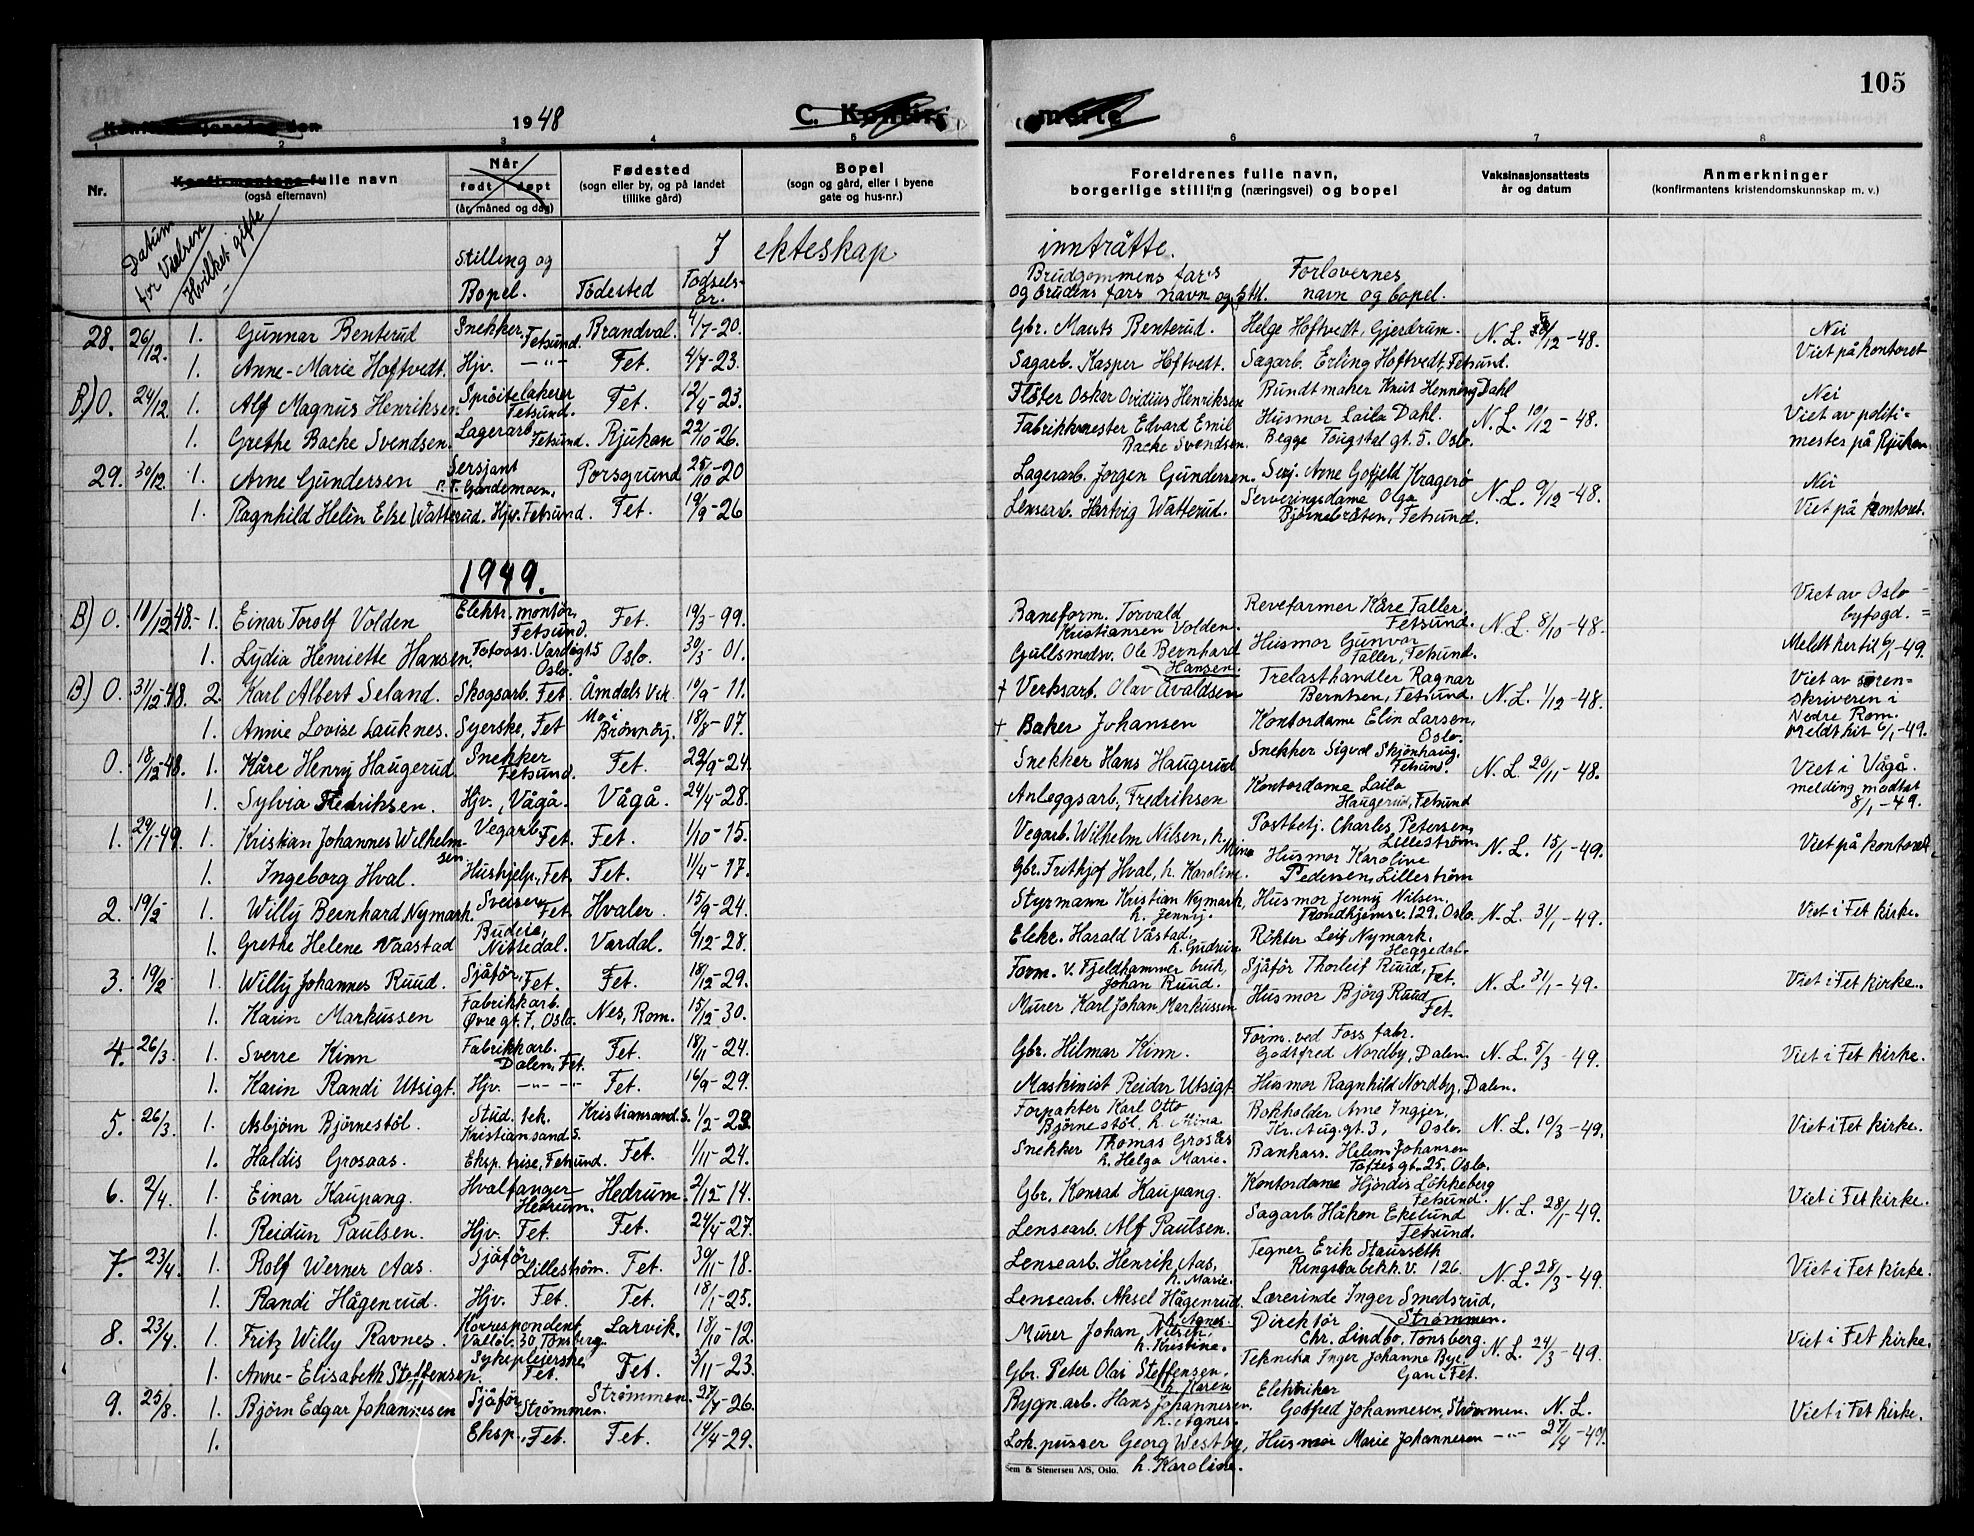 105
Konfirmasjonsdag den 1948 C. Konfir- merte
1 2 3 4 5 6 7 8
Nr. Konfirmantens fulle navn (også efternavn) Når født døpt (år, måned og dag) Fødested (sogn eller by, og på landet tillike gård) Bopel (sogn og gård, eller i byene gate og hus-nr.) Foreldrenes fulle navn, borgerlige stilling (næringsvei) og bopel Vaksinasjonsattests år og datum Anmerkninger (konfirmantens kristendomskunnskap m. v.)
Datum for Vielsen Hvilket gifte Stilling og Bopel. Födested Födselsår. I ekteskap inntråtte. Brudgommens fars og brudens fars navn og still. Forlovernes navn og bopel.
28. 26/12. 1. Gunnar Benterud Snekker. Fetsund. Brandval. 4/7-20. Gbr. Mauts Benterud. Helge Hoftvedt, Gjerdrum. N.L. /12-48. Nei
1. Anne-Marie Hoftvedt. Hjv. -"- Fet. 4/7-23. Sagarb. Kasper Hoftvedt. Sagarb. Erling Hoftvedt, Fetsund. Viet på kontoret
B) O. 24/12. 1. Alf Magnus Henriksen. Spröitelakerer Fetsund. Fet. 12/4-23. Flöter Oskar Ovidius Henriksen Buntmaker Knut Henning Dahl N.L. 10/12-48. Nei
1. Grethe Backe Svendsen. Lagerarb. Fetsund. Rjukan 22/10-26. Fabrikkmester Edvard Emil Backe Svendsen. Husmor Laila Dahl. Begge Tougstel gt. 5. Oslo. Viet av politimester på Rjukan
29. 30/12. 1. Arne Gundersen Sersjant p.t. Gardemoen. Porsgrund 25/10-20 Lagerarb. Jorgen Gundersen. Serj. Arne Gofjeld Kragerö N.L. 9/12-48. Nei
1. Ragnhild Helèn Else Watterud. Hjv. Fetsund. Fet. 19/9-26 Lensearb. Hartvig Watterud. Serveringsdame Olga Björnebråten, Fetsund. Viet på kontoret.
1949.
B) O. 18/12-48. 1. Einar Torolf Volden Elektr. montör, Fetsund. Fet. 19/3-99. Baneform. Torvald Kristiansen Volden. Revefarmer Kåre Faller, Fetsund. N.L. 8/10-48. Viet av Oslo byfogd.
1. Lydia Henriette Hansen. Fotoass. Vardegt. 5 Oslo. Oslo. 30/3-01. Gullsmedsv. Ole Bernhard Hansen. Husmor Gunvor Faller, Fetsund. Meldt her til 6/1-49.
B) O. 31/12-48. 2. Karl Albert Seland. Skogsarb. Fet. Åmdals Verk. 10/9-11. † Verksarb. Olav Avaldsen Trelasthandler Ragnar Berntsen, Fetsund. N.L. 1/12-48. Viet av sorenskriveren i Nedre Rom.
1. Annie Lovise Lauknes. Syerske, Fet Mo i Brönnöy. 18/8-07. † Baker Johansen Kontordame Elin Larsen, Oslo. Meldt hit 6/1-49.
O. 18/12-48. 1. Kåre Henry Haugerud Snekker Fetsund. Fet. 22/9-24. Snekker Hans Haugerud Snekker Sigvd Skjönhaug, Fetsund. N.L. 20/11-48. Viet i Vågå.
1. Sylvia Fredriksen. Hjv., Vågå. Vågå. 24/4-28. Anleggsarb. Fredriksen Kontordame Laila Haugerud, Fetsund melding mottat 8/1-49.
1. 29/1-49. 1. Kristian Johannes Wilhelmsen Vegarb. Fet. Fet. 1/10-15. Vegarb. Wilhelm Nilsen, h. Mina Postbetj. Charles Petersen, Lilleström. N.L. 15/1-49. Viet på kontoret
1. Ingeborg Hval. Hushjelp, Fet. Fet. 11/4-17. Gbr. Frithjof Hval, h. Karoline. Husmor Karoline Pedersen, Lilleström
2. 19/2- 1. Willy Bernhard Nymark. Sveiser Fet. Hvaler. 15/9-24. Styrmann Kristian Nymark, h. Jenny. Husmor Jenny Nilsen, Trondhjemsv. 129, Oslo. N.L. 31/1-49. Viet i Fet kirke.
1. Grethe Helene Vaastad Budeie, Nittedal. Vardal. 6/12-28. Elekr. Harald Våstad, h. Gudrun. Rökter Leif Nymark, Heggedal.
3. 19/2- 1. Willy Johannes Ruud. Sjåför, Fet. Fet. 18/12-29. Form. v. Fjeldhammer bruk, Johan Ruud. Sjåför Thorleif Ruud, Fet. N.L. 31/1-49. Viet i Fet kirke.
1. Karin Markussen Fabrikkarb. Øvre gt. 7, Oslo. Nes, Rom. 15/12-30. Murer Karl Johan Markussen Husmor Björg Ruud Fet.
4. 26/3. 1. Sverre Kinn Fabrikkarb. Dalen, Fet. Fet. 18/11-24. Gbr. Hilmar Kinn. Form. ved Foss fabr. Godtfred Nordby, Dalen. N.L. 5/3-49. Viet i Fet kirke.
1. Karin Randi Utsigt. Hjv. -"- -"- Fet. 16/9-29. Maskinist Reidar Utsigt Husmor Ragnhild Nordby, Dalen.
5. 26/3. 1. Asbjörn Björnestöl. Stud. tek. Kristiansand S. Kristiansand S. 1/2-23. Forpakter Karl Otto Björnestöl. h. Mina Bokholder Arne Ingjer, Kr. Aug. gt. 3, Oslo. N.L. 10/3-49. Viet i Fet kirke.
1. Haldis Grosaas. Eksp. trise, Fetsund. Fet. 1/11-24. Snekker Thomas Grosås h. Helga Marie. Bankass. Helen Johansen Toftes gt. 25. Oslo.
6. 2/4. 1. Einar Kaupang. Hvalfanger Hedrum. Hedrum. 2/12-14. Gbr. Konrad Kaupang. Kontordame Hjördis Lökkeberg Fetsund. N.L. 28/1-49. Viet i Fet kirke.
1. Reidun Paulsen. Hjv. Fet. Fet. 24/4-27. Lensearb. Alf Paulsen. Sagarb. Håkon Ekelund Fetsund.
7. 23/4. 1. Rolf Werner Aas. Sjåför Lilleström. Fet. 30/11-18. Lensearb. Henrik Aas, h. Marie. Tegner Erik Stausseth Ringstabekk v. 126. N.L. 28/3-49. Viet i Fet kirke.
1. Randi Hågenrud. Hjv. Fet. Fet. 18/1-25. Lensearb. Aksel Hågenrud. h. Agnes. Lærerinde Inger Smedsrud, Strömmen.
8. 23/4. 1. Fritz Willy Ravnes. Korrespondent, Vallöv. 30, Tönsberg. Larvik. 18/10-12. Murer Johan Nilsen, h. Kristine. Direktör Chr. Lindbo, Tönsberg. N.L. 24/3-49. Viet i Fet kirke.
1. Anne-Elisabeth Steffensen. Sykepleierske Fet. Fet. 3/11-23. Gbr. Peter Olai Steffensen. h. Karen Teknika Inger Johanne Bye, Gan i Fet.
9. 25/8. 1. Björn Edgar Johannesen Sjåför Strömmen. Strömmen. 27/4-26. Bygn. arb. Hans Johannesen. h. Agnes. Elektriker Gotfred Johannesen, Strömmen. N.L. 27/4-49. Viet i Fet kirke.
1. Eksp., Fet. Fet. 14/4-29. Lok. pusser Georg Westby, h. Karoline. Husmor Marie Johannesen -"-
Sem & Stenersen A/S, Oslo.